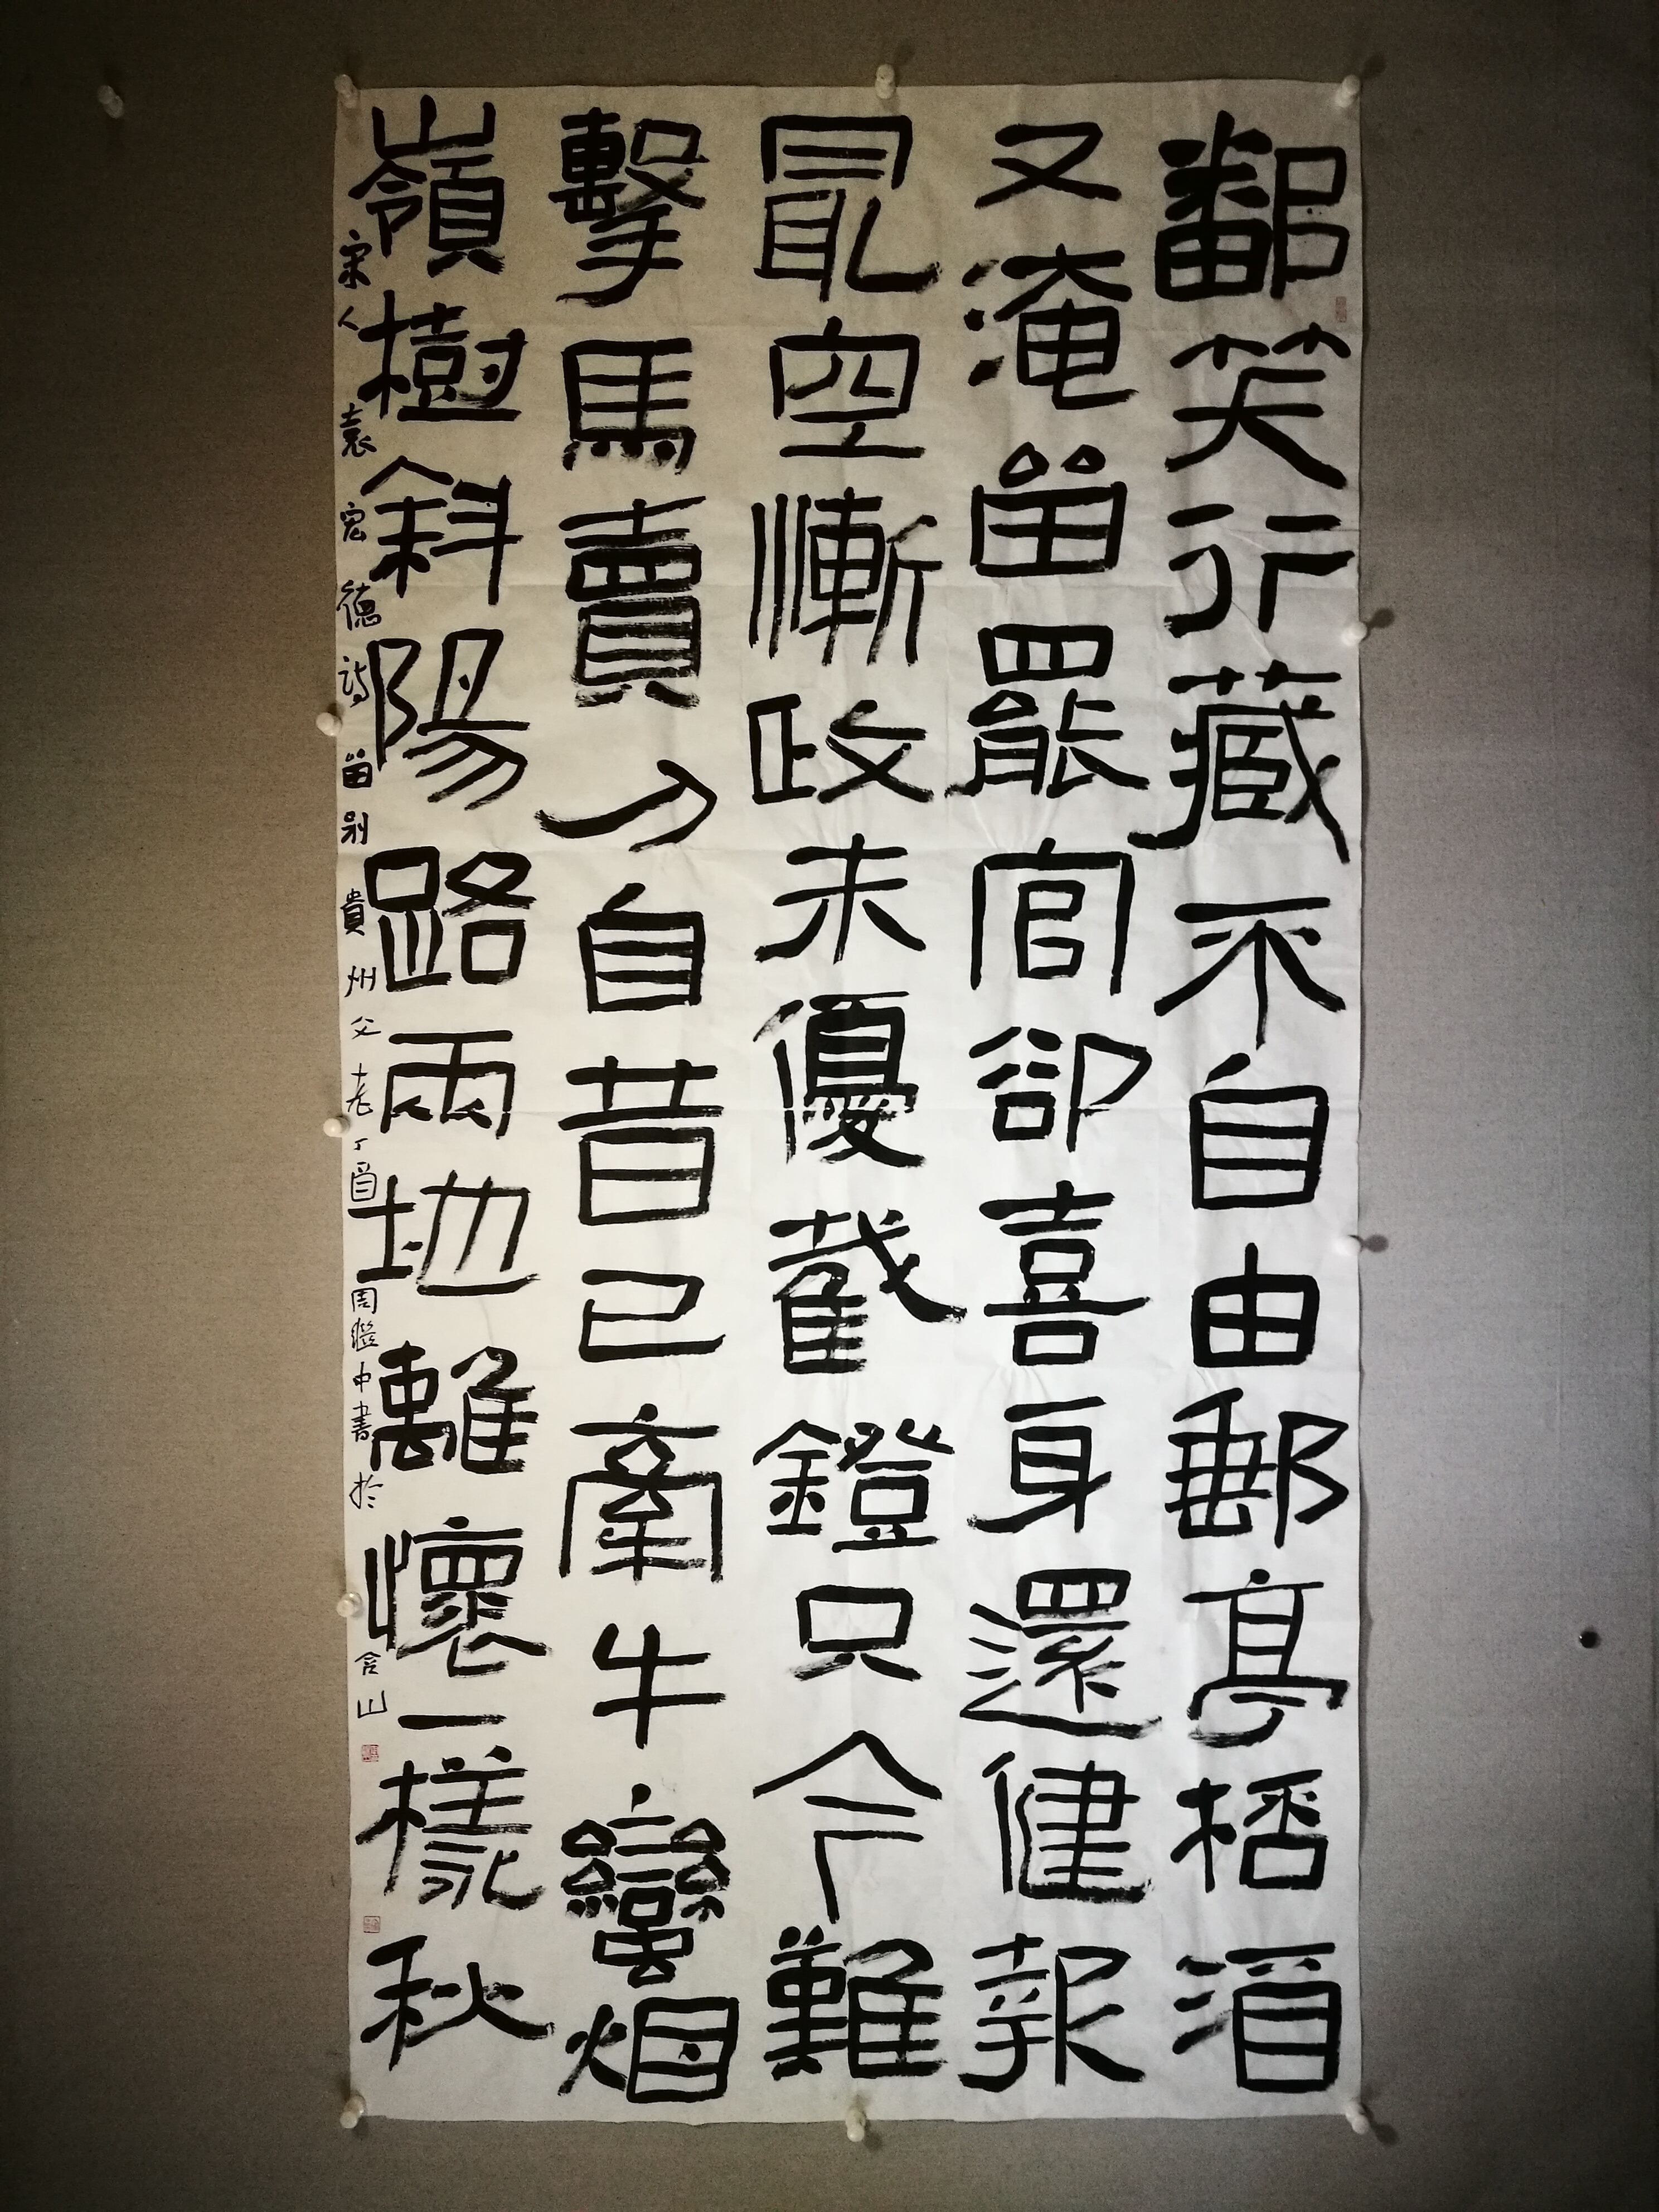 鄙笑行藏不自由郵亭桮酒
又淹留罷官卻喜身還健報
最空慚政未優截鐙只今難
擊馬賣刀自昔已牽牛蠻烟
嶺樹斜陽路兩地離懷一樣秋
宋人袁宏德詩留別貴州父老丁酉周繼中書於含山